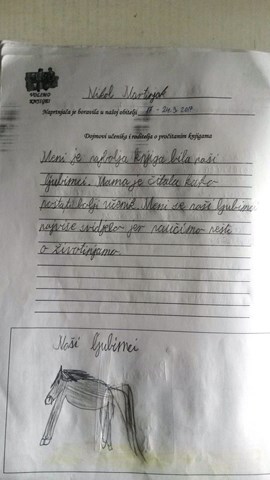 VOLIMO
KNJIGE
Nikol
Naprtnjača je boravila u našoj obitelji 18 - 24.3. 2017
Dojmovi učenika i roditelja o pročitanim knjigama
Meni je najbolja knjiga bila naši
ljubimci. Mama je čitala kako
postati bolji učenik. Meni se naše ljubimce
najviše svidjelo jer naučimo nešto
o životinjama.
Naši ljubimci